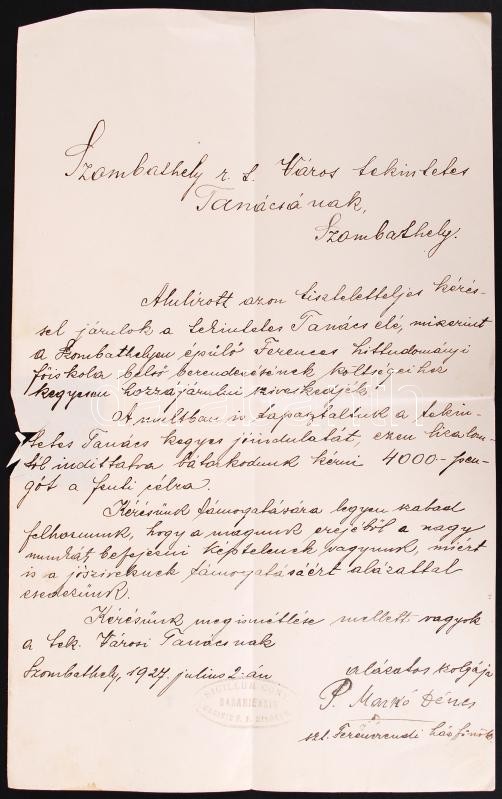 Szombathely r. t. Város tekintetes
Tanácsának,
Szombathely.
Alulírott azon tiszteletteljes kérés-
sel járulok a tekintetes Tanács elé, miszerint
a Szombathelyen épülő Ferences hittudományi
főiskola belső berendezésének költségeihez
kegyesen hozzájárulni sziveskedjék.
A multban is tapasztaltuk a tekin-
tetes Tanács kegyes jóindulatát, ezen bizalom-
tól indíttatva bátorkodunk kérni 4000-pen-
gőt a fenti célra.
Kérésünk támogatására legyen szabad
felhoznunk, hogy a magunk erejéből a nagy
munkát befejezni képtelenek vagyunk, miért
is a jószíveknek támogatásáért alázattal
esedezünk.
Kérésünk megismétlése mellett vagyok
a tek. Városi Tanácsnak
Szombathely, 1927. julius 2-án
alázatos szolgája
P. Markó Dénes
szt. Ferencrendi házfőnök
SIGILLUM CONV.
SABARIENSIS